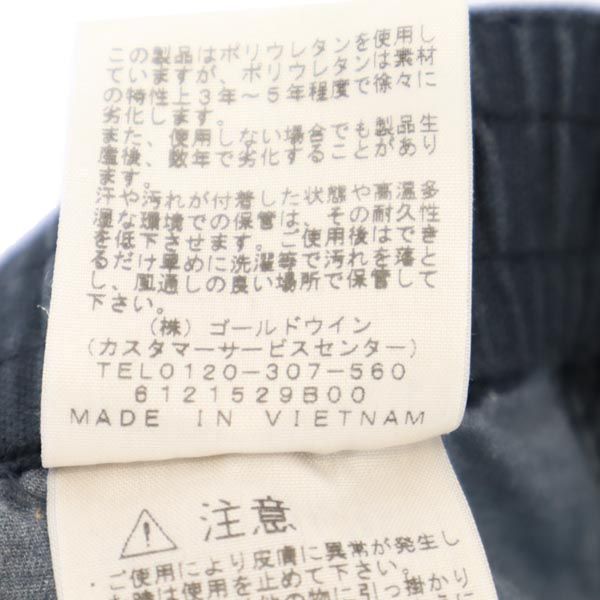 この製品はポリウレタンを使用し
ていますが、ポリウレタンは素材
の特性上3年〜5年程度で徐々に
劣化します。
また、使用しない場合でも製品生
産後、数年で劣化することがあり
ます。
汗や汚れが付着した状態や高温多
湿な環境での保管は、その耐久性
を低下させます。ご使用後はでき
るだけ早めに洗濯等で汚れを落と
し、風通しの良い場所で保管して
下さい。
(株)ゴールドウイン
(カスタマーサービスセンター)
TEL0120-307-560
6121529B00
MADE IN VIETNAM
注意
ご使用により皮膚に異常が発生し
た時は使用を止めて下さい。
の物に引っ掛かり